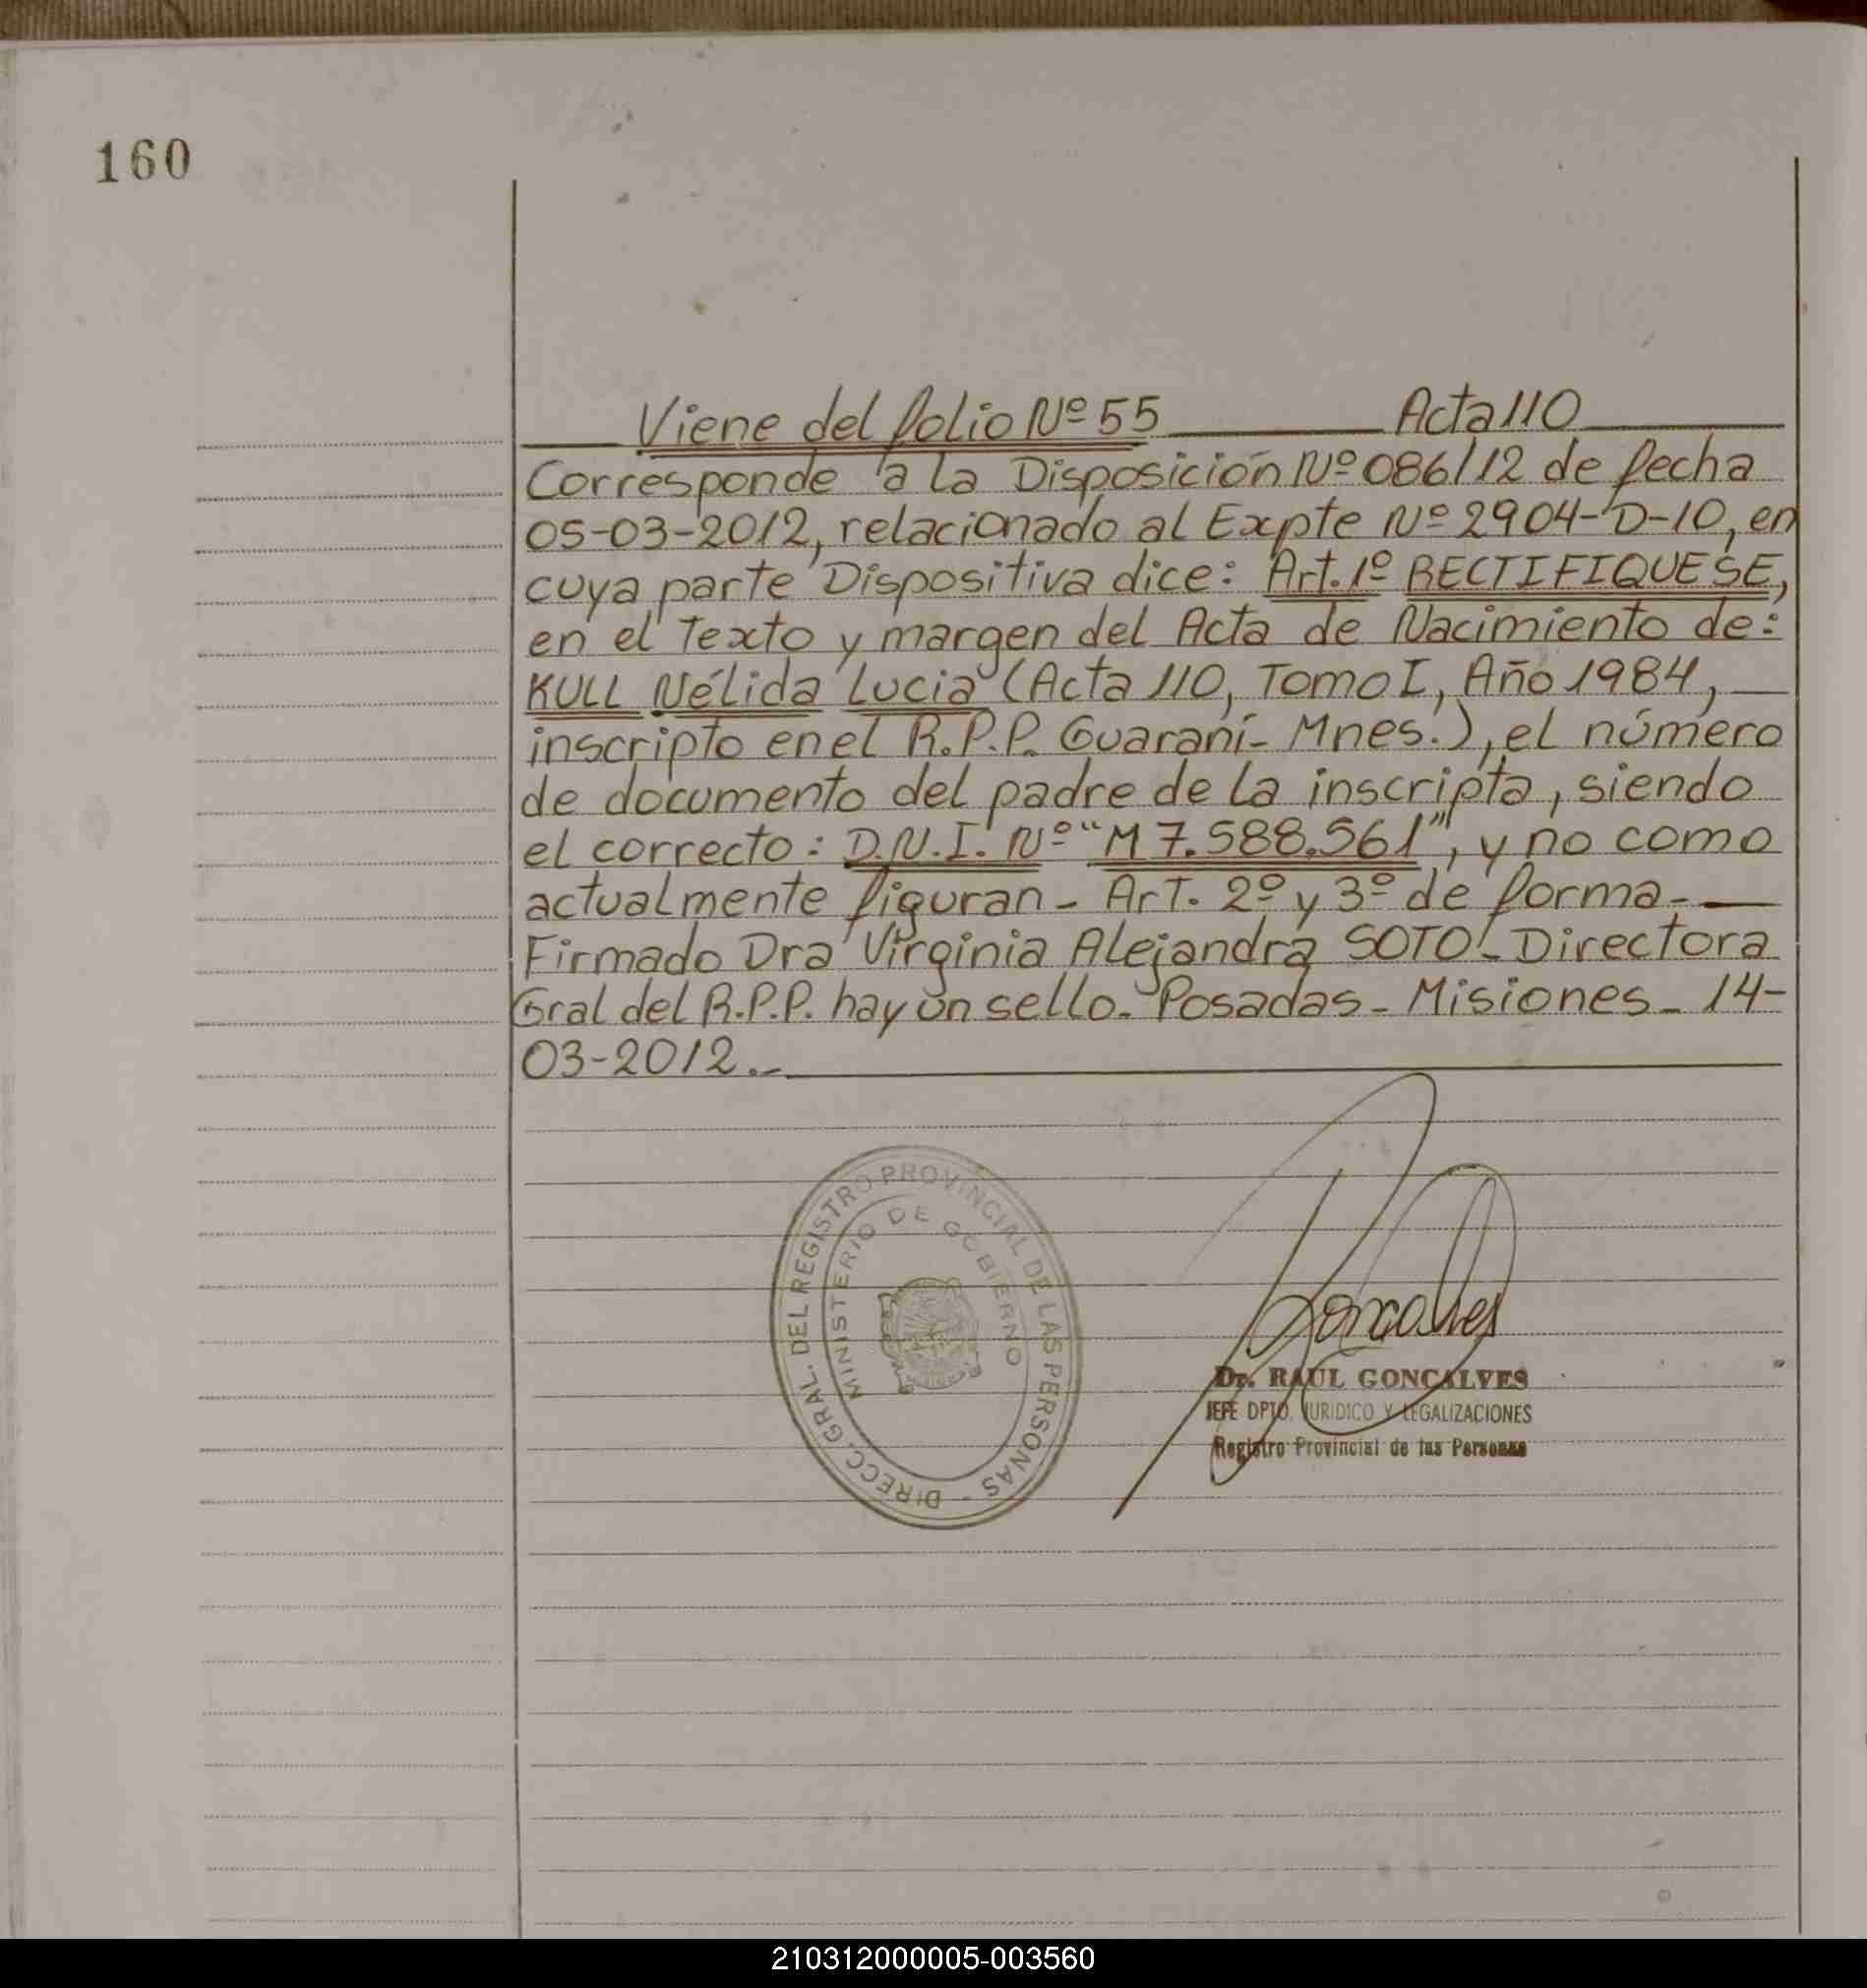 160
Viene del folio Nº 55 Acta 110
Corresponde a la Disposición Nº 086/12 de fecha
05-03-2012, relacionado al Expte Nº 2904-D-10, en
cuya parte Dispositiva dice: Art. 1º RECTIFIQUESE,
en el Texto y margen del Acta de Nacimiento de:
KULL Nélida Lucia (Acta 110, Tomo I, Año 1984,
inscripto en el R.P.P. Guaraní- Mnes.), el número
de documento del padre de la inscripta, siendo
el correcto: D.N.I. Nº "M 7.588.561", y no como
actualmente figuran- Art. 2º y 3º de forma.-
Firmado Dra Virginia Alejandra SOTO- Directora
Gral del R.P.P. hay un sello.- Posadas- Misiones- 14-
03-2012.-
DIRECC. GRAL. DEL REGISTRO PROVINCIAL DE LAS PERSONAS -
MINISTERIO DE GOBIERNO
Goncalves
Dr. RAUL GONCALVES
JEFE DPTO. JURIDICO Y LEGALIZACIONES
Registro Provincial de las Personas
210312000005-003560